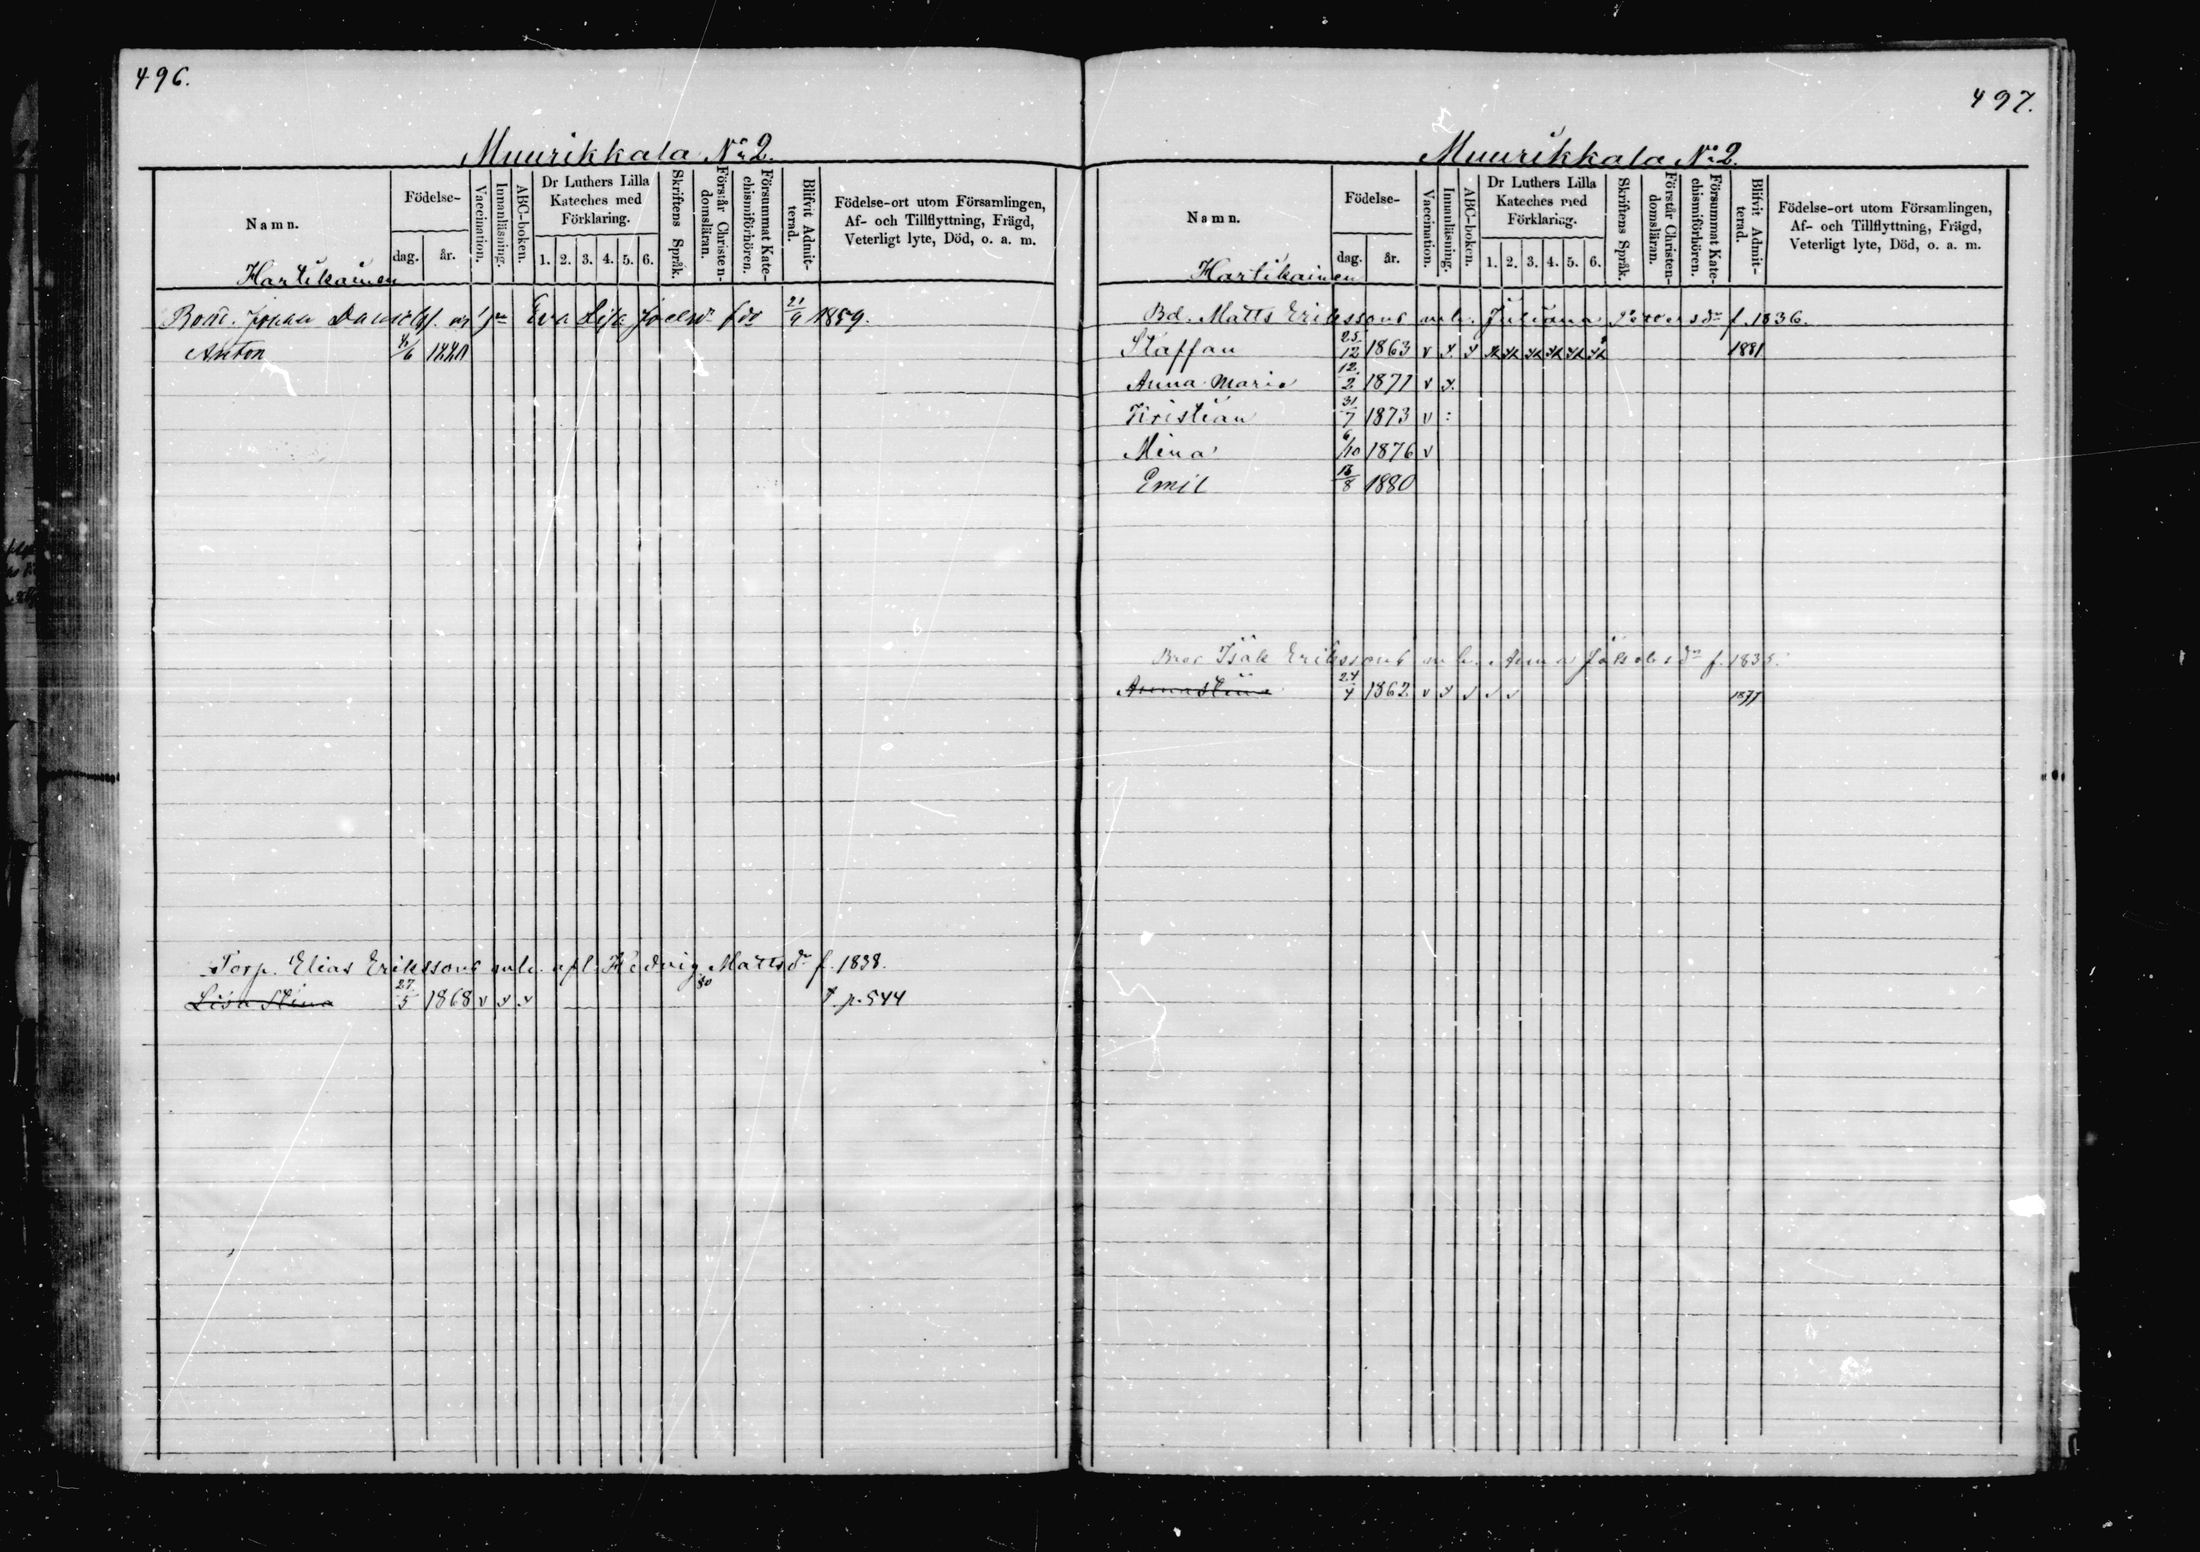 496.
Muurikkala No 2.
Namn.
Födelse-
dag.
år.
Vaccination.
Innanläsning.
ABC-boken.
Dr Luthers Lilla
Kateches med
Förklaring.
1. 2. 3. 4. 5. 6.
Skriftens Språk.
Förstår Christen-
domsläran.
Försummat Kate-
chismiförhören.
Blifvit Admit-
terad.
Födelse-ort utom Församlingen,
Af- och Tillflyttning, Frägd,
Veterligt lyte, Död, o. a. m.
Hartikainen
Bond. Johan Eva Lisa 21/9 1859.
Anton
Torp. Elias Erikssons enk. afl. Hedvig Mattsdr f. 1838.
Lisa Stina 27/5 1868 v x x 80 † p. 544
497.
Muurikkala No 2.
Namn.
Födelse-
dag.
år.
Vaccination.
Innanläsning.
ABC-boken.
Dr Luthers Lilla
Kateches med
Förklaring.
1. 2. 3. 4. 5. 6.
Skriftens Språk.
Förstår Christen-
domsläran.
Försummat Kate-
chismiförhören.
Blifvit Admit-
terad.
Födelse-ort utom Församlingen,
Af- och Tillflyttning, Frägd,
Veterligt lyte, Död, o. a. m.
Hartikainen
Bd. Matts Erikssons m. h. Juliana Petersdr f. 1836.
Staffan 25/12 1863 v x x 1881
Anna Maria 12/2 1871 v x
Kristian 31/7 1873 v :
Mina 6/10 1876 v
Emil 13/8 1880
Bror Isak Erikssons m. h. Anna Jakobsdr f. 1835.
Anna Stina 24/4 1862 v x v v v 1877